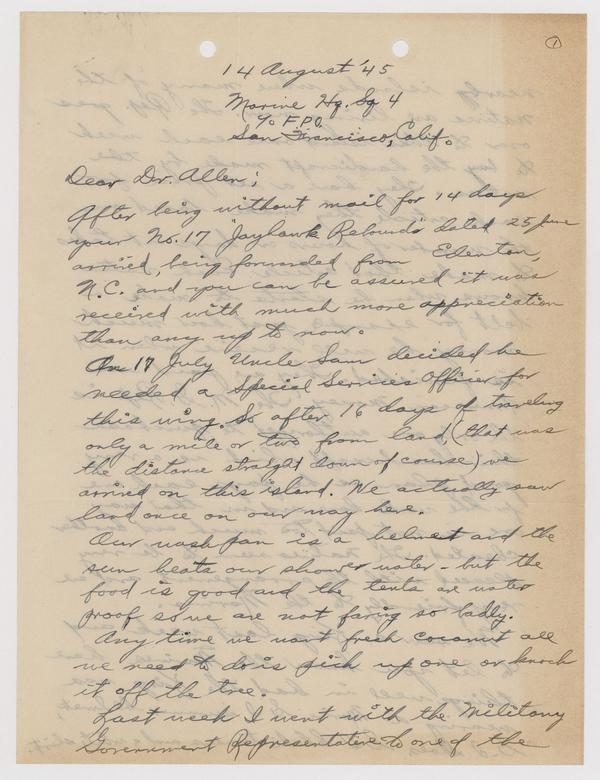 1
14 August '45
Marine Hq. Sq 4
℅ F.P.O.
San Francisco, Calif.
Dear Dr. Allen;
After being without mail for 14 days
your No. 17 "Jayhawk Rebounds" dated 25 June
arrived, being forwarded from Edenton,
N.C. and you can be assured it was
received with much more appreciation
than any up to now.
On 17 July Uncle Sam decided he
needed a Special Services Officer for
this wing. So after 16 days of traveling
only a mile or two from land (that was
the distance straight down of course) we
arrived on this island. We actually saw
land once on our way here.
Our wash pan is a helmet and the
sun heats our shower water - but the
food is good and the tents are water
proof so we are not faring so badly.
Any time we want fresh coconut all
we need to do is pick up one or knock
it off the tree.
Last week I went with the Military
Government Representative to one of the